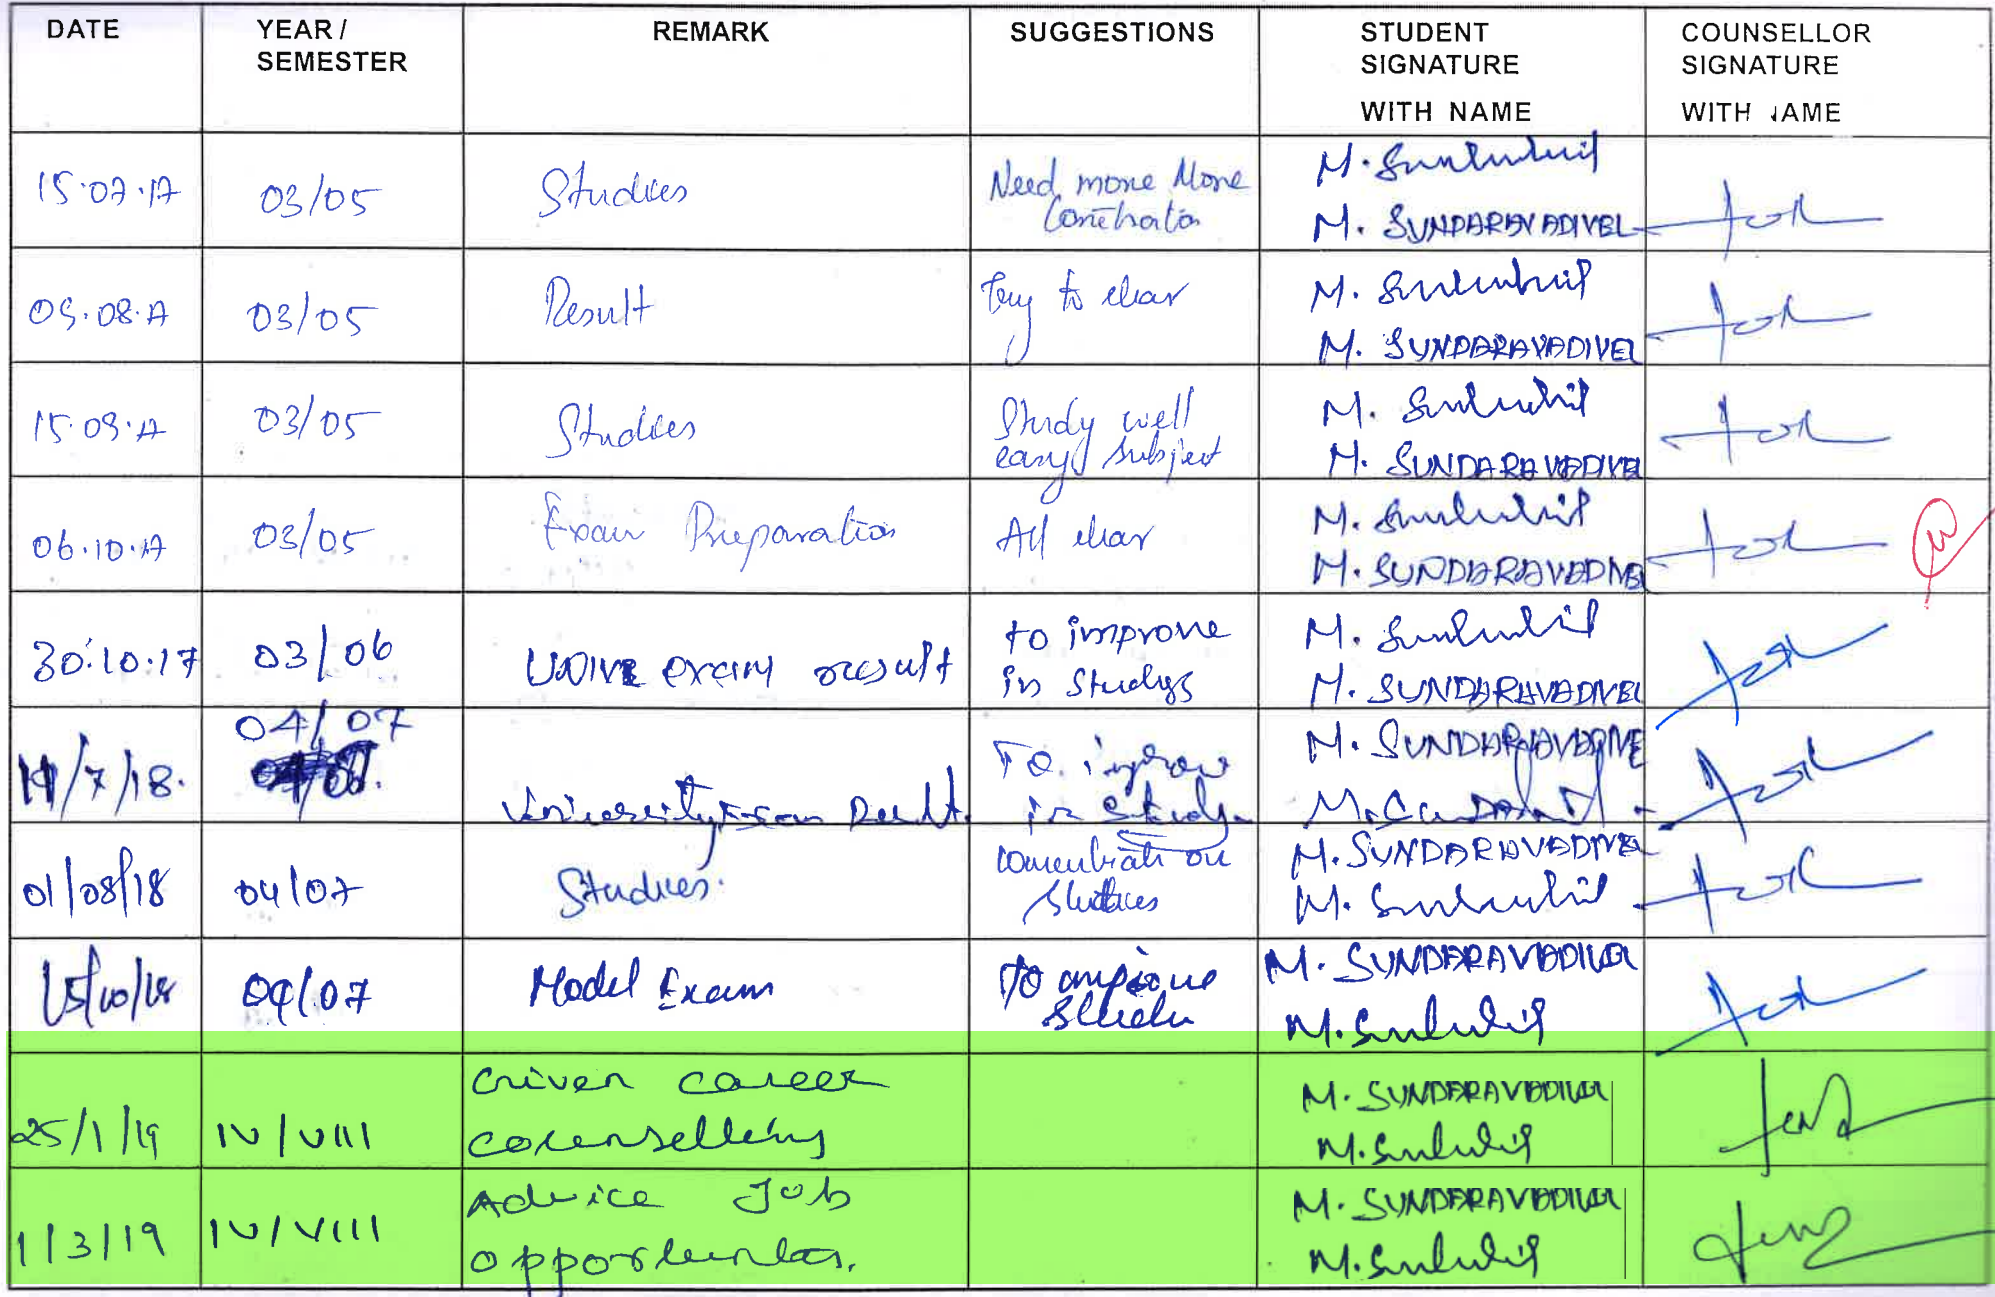 DATE YEAR / SEMESTER REMARK SUGGESTIONS STUDENT SIGNATURE WITH NAME COUNSELLOR SIGNATURE WITH NAME
15.07.17 03/05 Studies Need more More
M. SUNDARAVADIVEL
09.08.17 03/05 Result Try to clear
M. SUNDARAVADIVEL
15.09.17 03/05 Studies Study well
easy subject
M. SUNDARAVADIVEL
06.10.17 03/05 Exam Preparation All clear
M. SUNDARAVADIVEL
30.10.17 03/06 exam result to improve
in Studys
M. SUNDARAVADIVEL
04/07
/7/18. University Exam Result. To improve
in Study
M. SUNDARAVADIVEL
01/08/18 04/07 Studies. concentrate on
Studies
M. SUNDARAVADIVEL
15/10/18 04/07 Model Exam To improve
M. SUNDARAVADIVEL
25/1/19 IV/VIII Given career
counselling
M. SUNDARAVADIVEL
1/3/19 IV/VIII Advice Job
M. SUNDARAVADIVEL